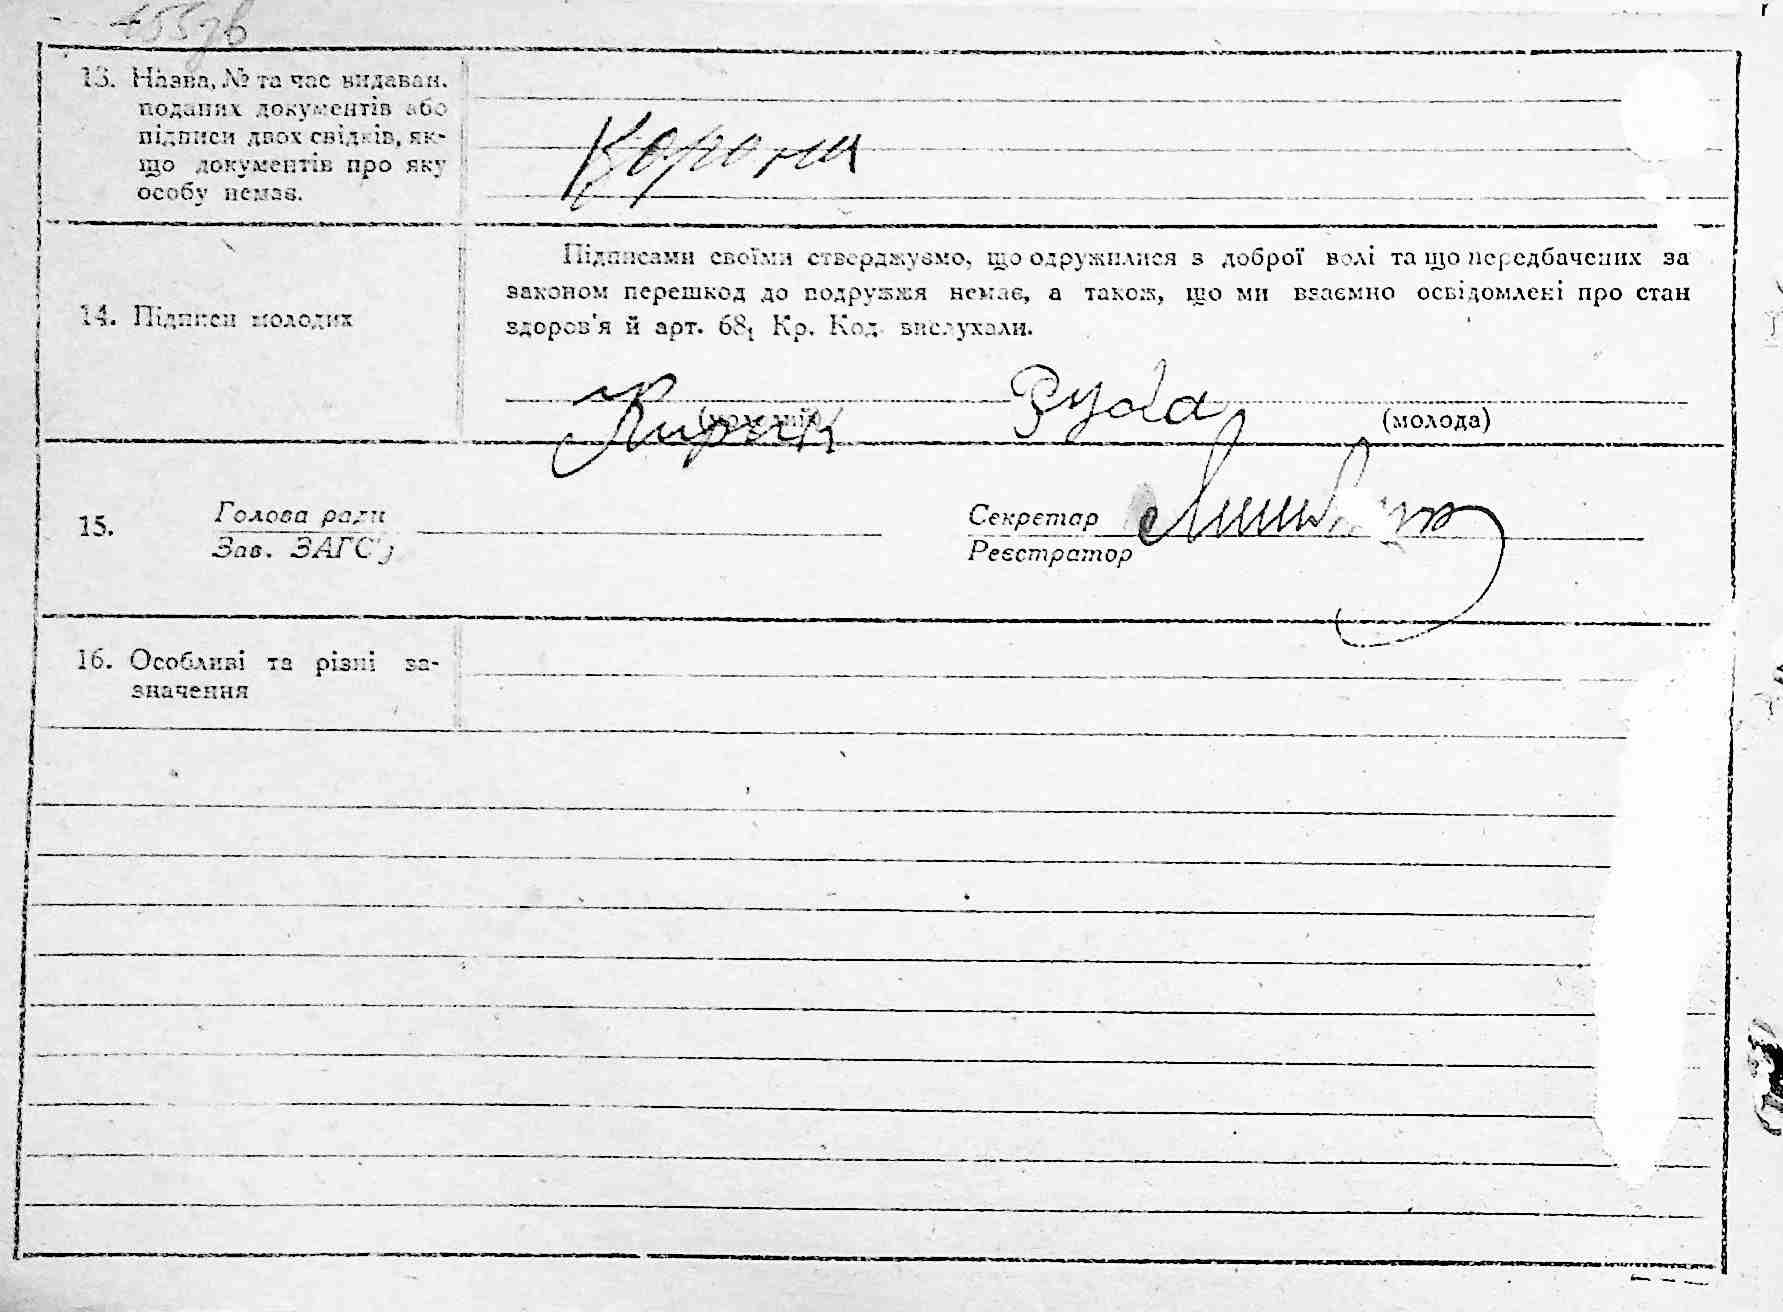 13. Назва, № та час видаван.
поданих документів або
підписи двох свідків, як-
що документів про яку
особу немає.
14. Підписи молодих
Підписами своїми стверджуємо, що одружилися з доброї волі та що передбачених за
законом перешкод до подружжя немає, а також, що ми взаємно освідомлені про стан
здоров'я й арт. 68₁ Кр. Код. вислухали.
Кирик Руда
(молодий) (молода)
15.
Голова ради
Зав. ЗАГС'у
Секретар
Реєстратор
16. Особливі та різні за-
значення